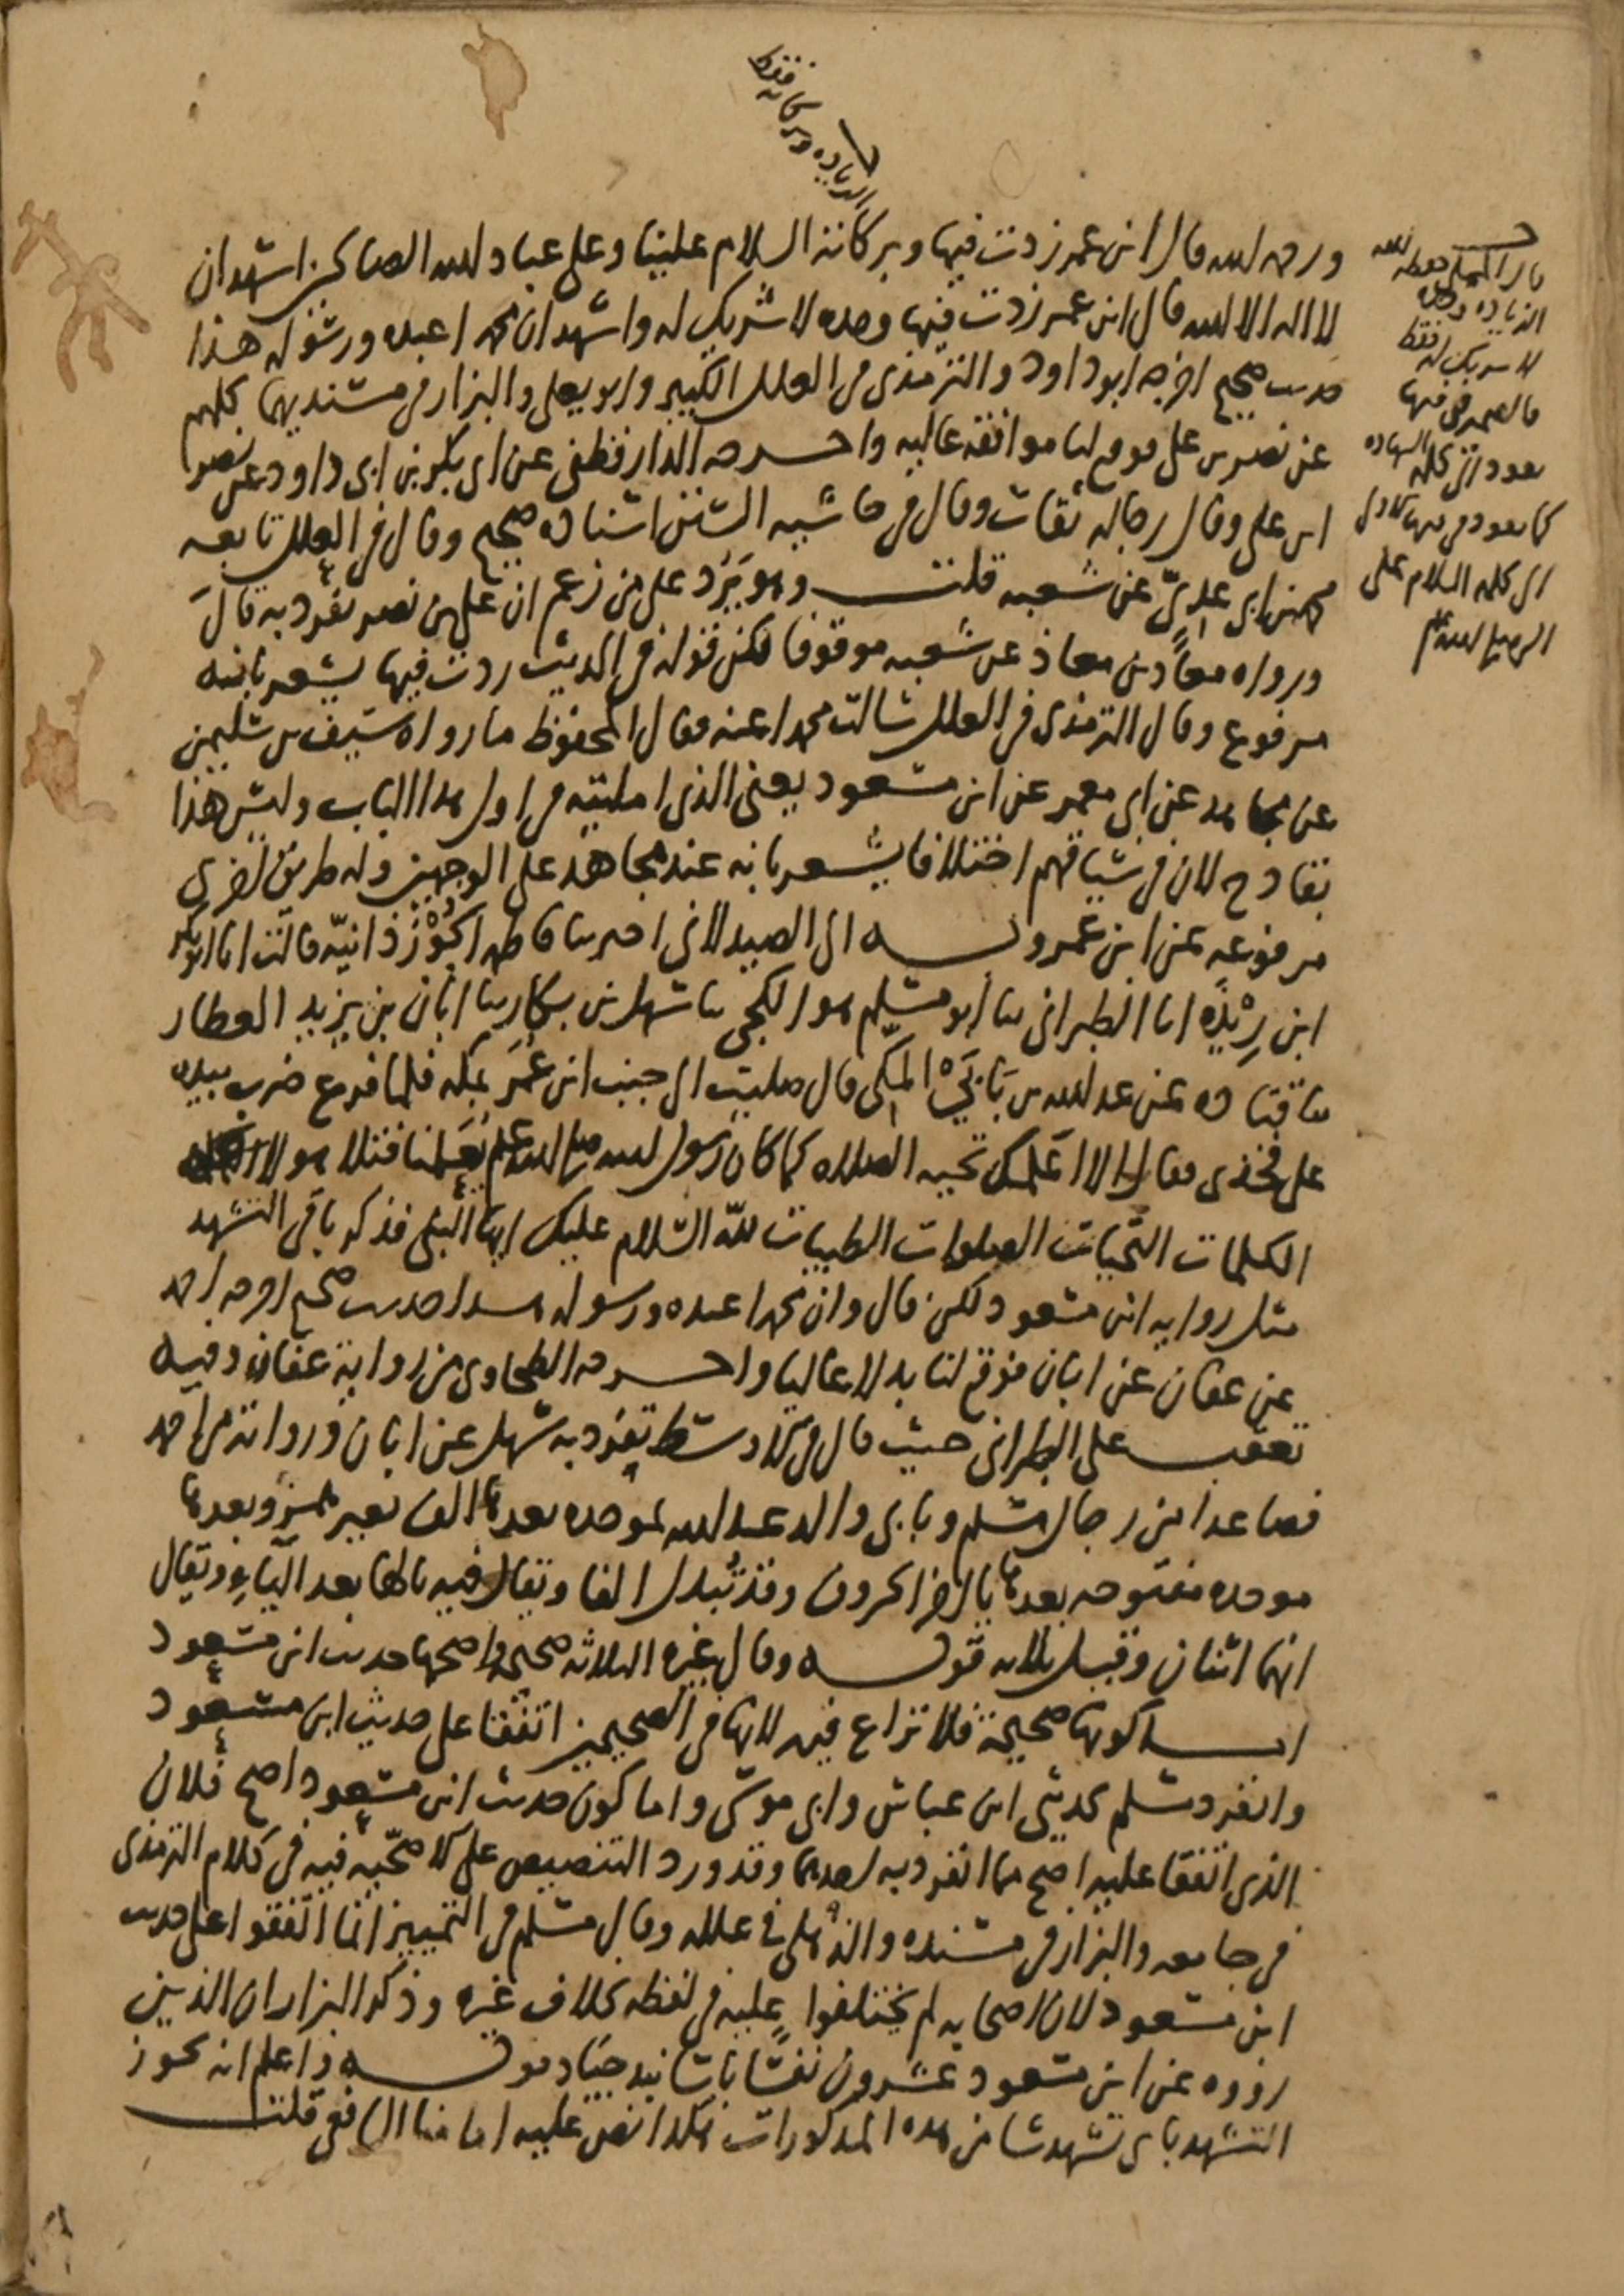 الزيادة وبركاته فقط
ورحمة الله قال ابن عمر زدت فيها وبركاته السلام علينا وعلى عباد الله الصالحين اشهد ان
لا اله الا الله قال ابن عمر زدت فيها وحده لا شريك له واشهد ان محمدا عبده ورسوله هذا
حديث صحيح اخرجه ابو داود والترمذي في العلل الكبير وابو يعلى والبزار في مسنديهما كلهم
عن نصر بن علي فوقع لنا موافقة عالية واخرجه الدارقطني عن ابي بكر بن ابي داود عن نصر
ابن علي وقال رجاله ثقات وقال في حاشية السنن اسناده صحيح وقال في العلل تابعه
محمد بن ابي عدي عن شعبة قلت وهو يرد على من زعم ان علي بن نصر تفرد به قال
ورواه معاذ بن معاذ عن شعبة موقوفا لكن قوله في الحديث زدت فيها يشعر بانه
مرفوع وقال الترمذي في العلل سالت محمدا عنه فقال المحفوظ ما رواه سيف بن سليمن
عن مجاهد عن ابي معمر عن ابن مسعود يعني الذي امليته في اول هذا الباب وليس هذا
بقادح لان في سياقهم اختلافا يشعر بانه عند مجاهد على الوجهين وله طريق اخرى
مرفوعة عن ابن عمر وبه الى الصيدلاني اخبرتنا فاطمة الجوزذانية قالت انا ابو بكر
ابن ريذه انا الطبراني ثنا ابو مسلم هو الكجي ثنا سهل بن بكار ثنا ابان بن يزيد العطار
ثنا قتادة عن عبد الله بن بابي المكي قال صليت الى جنب ابن عمر بمكة فلما فرغ ضرب بيده
على فخذي فقال الا اعلمك تحية الصلاة كما كان رسول الله صلى الله عليه وسلم يعلمنا فتلا هولاء
الكلمات التحيات الصلوات الطيبات لله السلام عليك ايها النبي فذكر باقي التشهد
مثل رواية ابن مسعود لكن قال وان محمدا عبده ورسوله هذا حديث صحيح اخرجه احمد
عن عفان عن ابان فوقع لنا بدلا عاليا واخرجه الطحاوي من رواية عفان وفيه
تعقب على الطبراني حيث قال في الاوسط تفرد به سهل عن ابان ورواته من احمد
فصاعدا من رجال مسلم وبابي والد عبد الله بموحدة بعدها الف بغير همز وبعدها
موحدة مفتوحة بعدها ياء اخر الحروف وقد تبدل الفا ويقال فيه باهاء بعد الياء ويقال
انهما اثنان وقيل ثلاثة قوله وقال غيره الثلاثة صحيحة واصحها حديث ابن مسعود
اما كونها صحيحة فلا نزاع فيه لانها في الصحيحين اتفقا على حديث ابن مسعود
وانفرد مسلم بحديثي ابن عباس وابي موسى واما كون حديث ابن مسعود اصح فلان
الذي اتفقا عليه اصح مما انفرد به احدهما وقد ورد التنصيص على الاصحية فيه في كلام الترمذي
في جامعه والبزار في مسنده والذهلي في علله وقال مسلم في التمييز انما اتفقوا على حديث
ابن مسعود لان اصحابه لم يختلفوا عليه في لفظه بخلاف غيره وذكر البزار ان الذين
رووه عن ابن مسعود عشرون نفسا باسانيد جياد قوله واعلم انه يجوز
التشهد باي تشهد شا من هذه المذكورات هكذا نص عليه امامنا الشافعي قلت
الزيادة وحده
لا شريك له فقط
فالضمير في فيها
يعود الى كلمة الشهادة
كما يعود في فيها الاول
الى كلمة السلام على
النبي صلى الله عليه وسلم